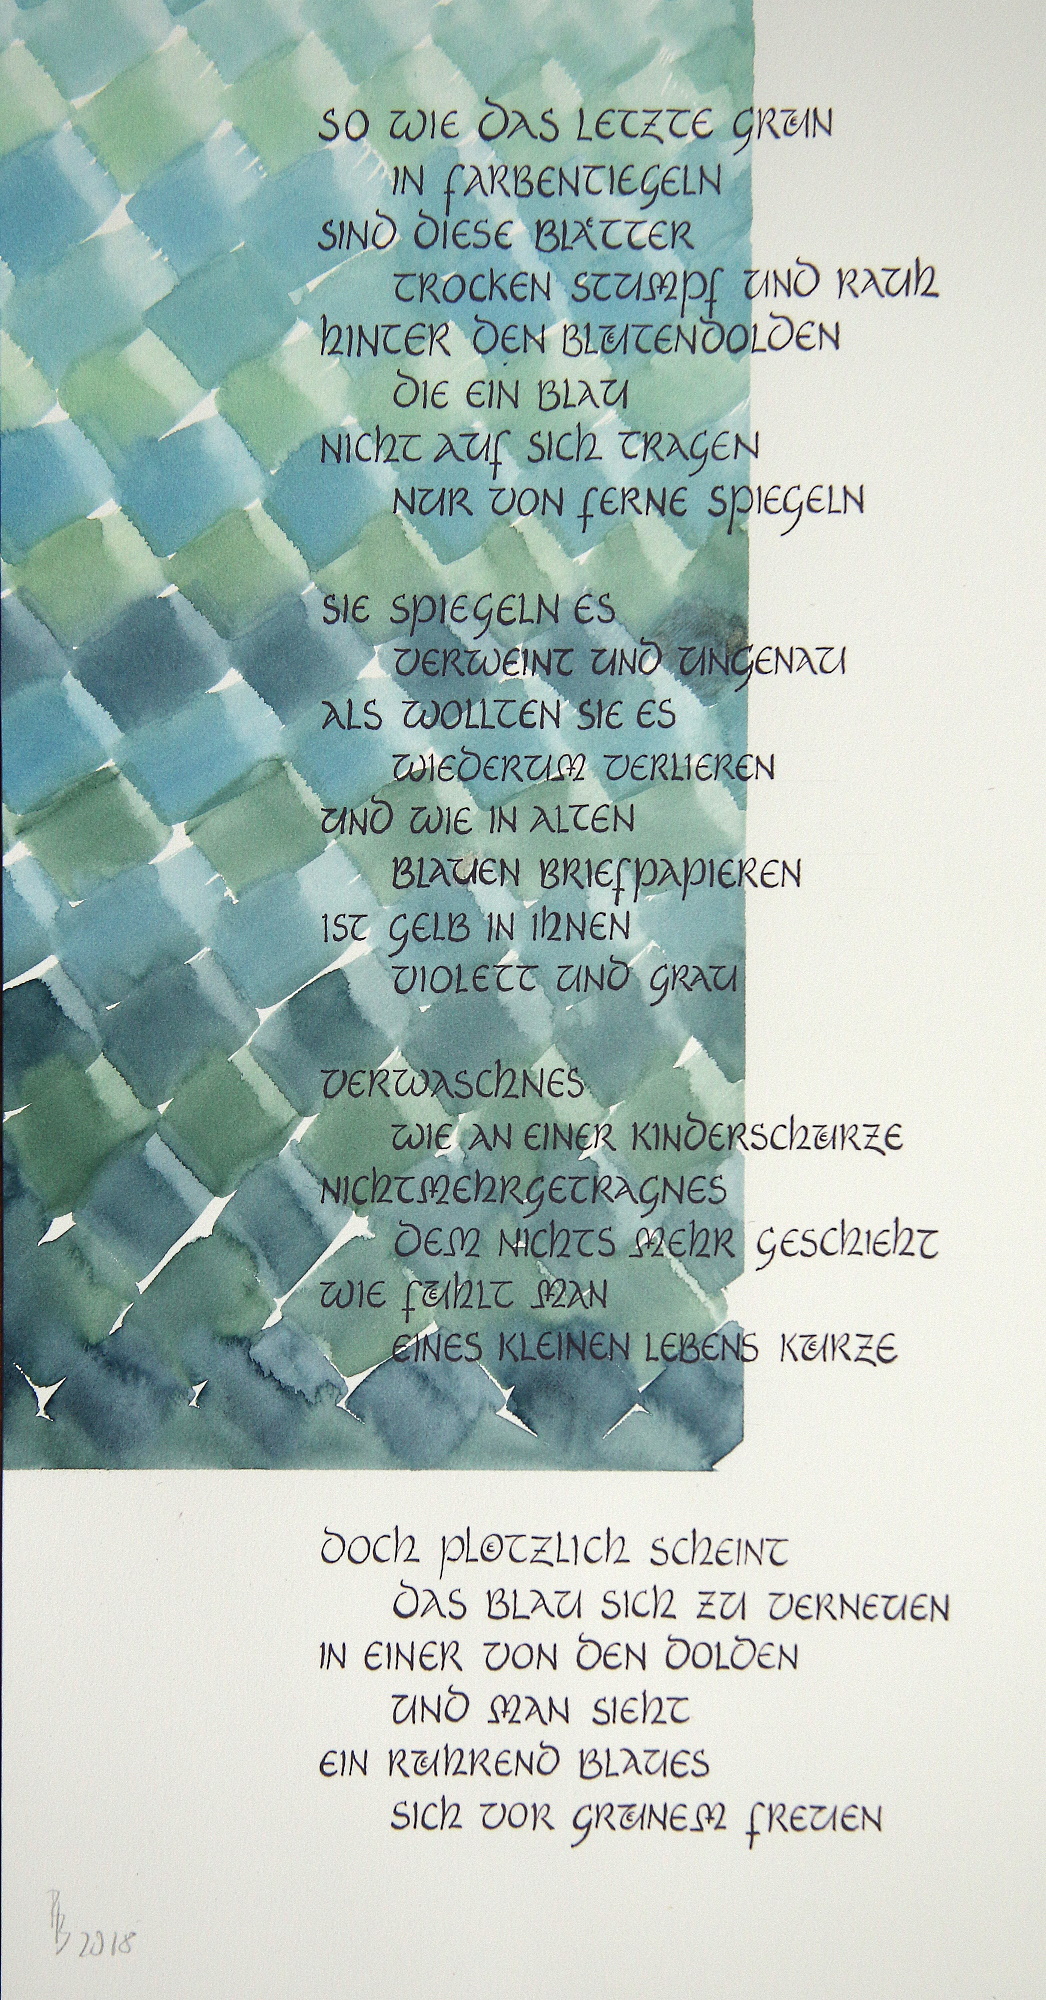 SO WIE DAS LETZTE GRÜN
IN FARBENTIEGELN
SIND DIESE BLÄTTER
TROCKEN STUMPF UND RAUH
HINTER DEN BLÜTENDOLDEN
DIE EIN BLAU
NICHT AUF SICH TRAGEN
NUR VON FERNE SPIEGELN

SIE SPIEGELN ES
VERWEINT UND UNGENAU
ALS WOLLTEN SIE ES
WIEDERUM VERLIEREN
UND WIE IN ALTEN
BLAUEN BRIEFPAPIEREN
IST GELB IN IHNEN
VIOLETT UND GRAU

VERWASCHNES
WIE AN EINER KINDERSCHÜRZE
NICHTMEHRGETRAGNES
DEM NICHTS MEHR GESCHIEHT
WIE FÜHLT MAN
EINES KLEINEN LEBENS KÜRZE

DOCH PLÖTZLICH SCHEINT
DAS BLAU SICH ZU VERNEUEN
IN EINER VON DEN DOLDEN
UND MAN SIEHT
EIN RÜHREND BLAUES
SICH VOR GRÜNEM FREUEN

2018